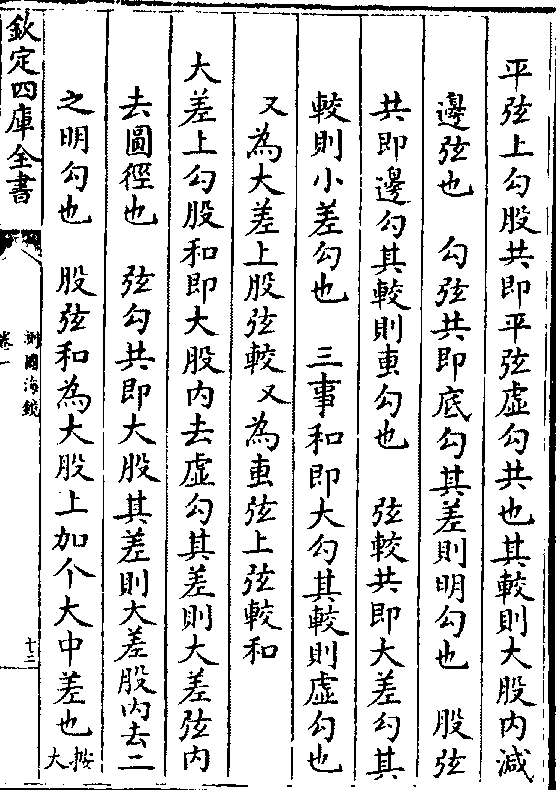 平弦上勾股共即平弦虛勾共也其較則大股内減
邊弦也　勾弦共即底勾其差則明勾也　股弦
共即邊勾其較則䡖勾也　弦較共即大差勾其
較則小差勾也　三事和即大勾其較則虛勾也
又為大差上股弦較又為䡖弦上弦較和
大差上勾股和即大股内去虛勾其差則大差弦内
去圓徑也　弦勾共即大股其差則大差股内去二
之明勾也　股弦和為大股上加个大中差也按大
欽定四庫全書
測圓海鏡
卷一
十三